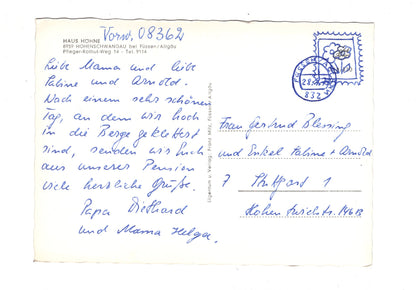 Vorw. 08362
HAUS HOHNE
8959 HOHENSCHWANGAU bei Füssen/Allgäu
Pfleger-Rothut-Weg 14 - Tel. 9114
Liebe Mama und liebe
Palme und Arnold.
Nach einem sehr schönen
Tag, an dem wir hoch
in die Berge geklettert
sind, senden wir Euch
aus unserer Pension
viele herzliche Grüße.
Papa Diethard
und Mama Helga.
Frau Gertrud Blessing
und Enkel Palme + Arnold
7 Stuttgart 1
Hohen